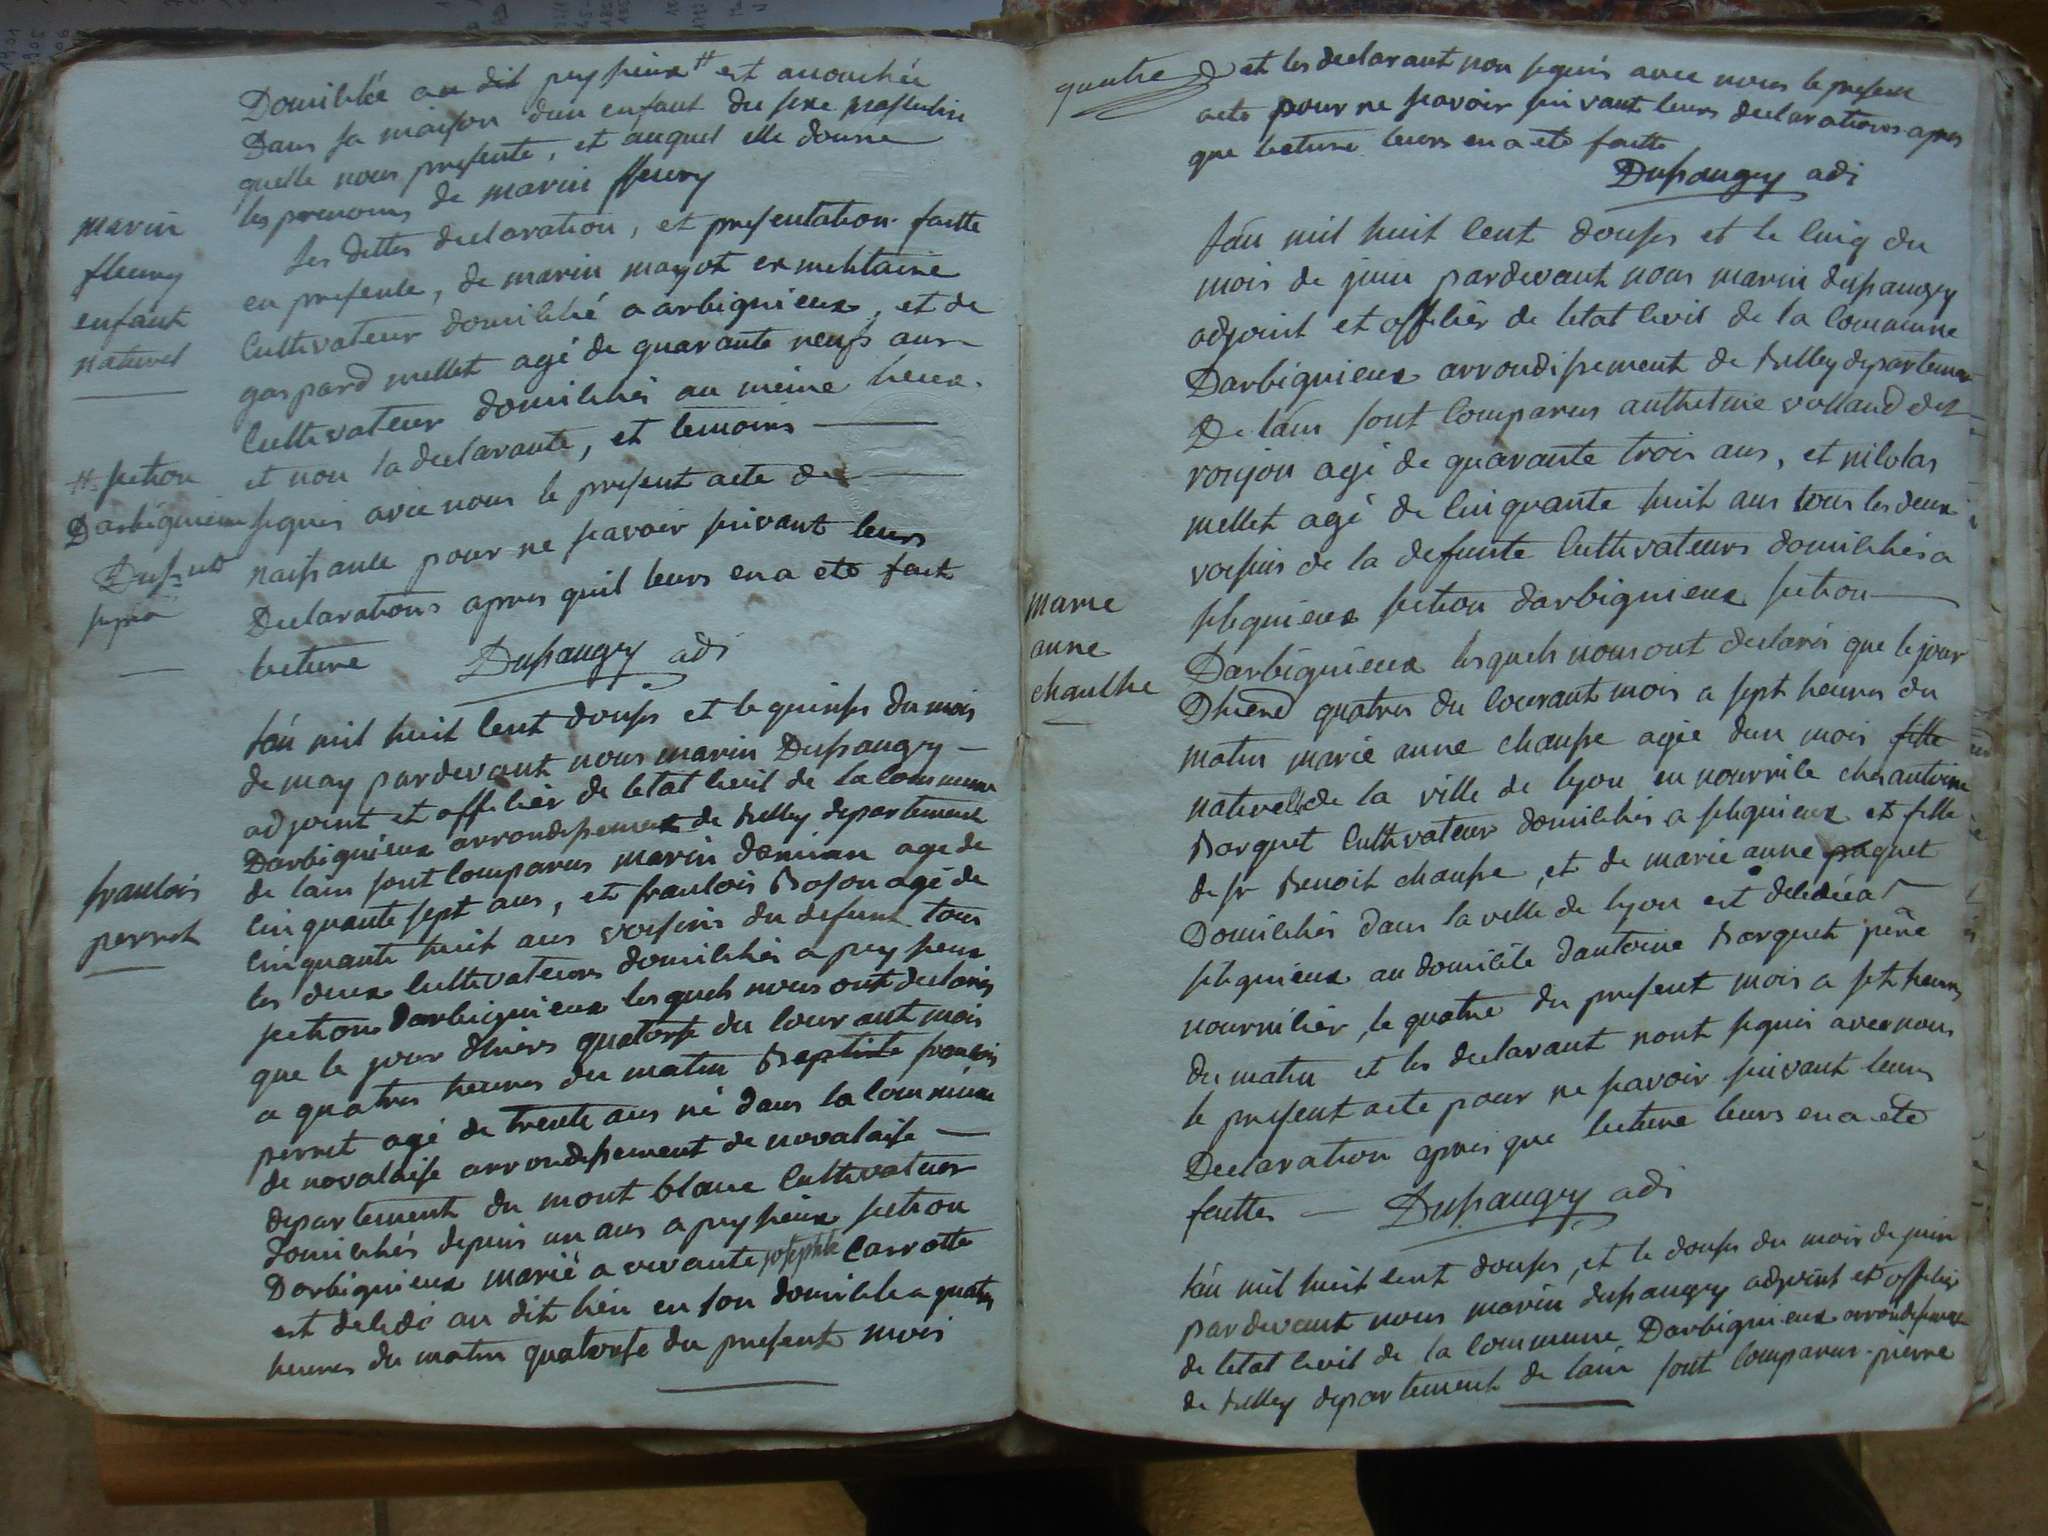 Domiciliée au dit peyzieux # est acouchée
Dans sa maison dun enfant du sexe masculin
quelle nous presente, et auquel elle donne
les prenoms de marin fleury
marin
fleury
enfant
naturel
les dittes declaration, et presentation faitte
en presente, de marin mayot ex militaire
Cultivateur domicilié a arbignieux, et de
gaspard mellet agé de quarante neufs ans
Cultivateur domiciliés au meme lieux
et non la declarante, et temoins
# section
Darbignieux
signés avec nous le present acte de
naissance pour ne savoir suivant leurs
Declarations apres quil leurs en a eté fait
lecture Dupaugey adj
lan mil huit cent douse et le quinse du mois
de may pardevant nous marin Dupaugey
adjoint et officiér de letat civil de la commune
Darbignieux arrondissement de Belley departement
de lain sont comparus marin damian agé de
cinquante sept ans, et francois Boson agé de
cinquante huit ans voisins du defunt tous
les deux cultivateurs domiciliés a peyzieux
francois
perret
section Darbignieux lesquels nous ont declarés
que le jour dhiérs quatorse du courant mois
a quatres heures du matin Baptiste francois
perret agé de trente ans né dans la commune
de novalaise arrondissement de novalaise
departement du mont blanc Cultivateur
domiciliés depuis un ans a peyzieux section
Darbignieux marié a vivante josephte Carrotte
est decedé au dit lieu en son domicile a quatres
heures du matin quatorse du present mois
quatre
et les declarant non signés avec nous le present
acte pour ne savoir suivant leurs declarations apres
que lecture leurs en a eté faitte
Dupaugey adj
lan mil huit cent douse et le cinq du
mois de juin pardevant nous marin dupaugey
adjoint et officiér de letat civil de la commune
Darbignieux arrondissement de Belley departement
De lain sont comparus anthelme volland dit
roujon agé de quarante trois ans, et nicolas
mellet agé de cinquante huit ans tous les deux
voisins de la defunte Cultivateurs domiciliés a
slignieux section darbignieux section
marie
anne
chausse
Darbignieux lesquels nous ont declarés que le jour
Dhiere quatres du courant mois a sept heures du
matin marie anne chausse agée dun mois fille
naturelle de la ville de lyon en nourrice ches antoine
Borquet Cultivateur domiciliés a slignieux et fille
de sr Benoit chausse, et de marie anne paquet
Domiciliés dans la ville de lyon est decedée a
slignieux au domicile dantoine Borquet père
nourricier, le quatre du present mois a sept heures
du matin et les declarant nont signés avec nous
le present acte pour ne savoir suivant leurs
Declaration apres que lecture leurs en a eté
faittes Dupaugey adj
lan mil huit cent douse, et le douse du mois de juin
pardevant nous marin dupaugey adjoint et officiér
de letat civil de la commune Darbignieux arrondissement
de Belley departement de lain sont comparus pierre